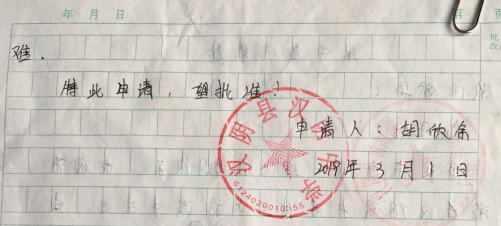 年 月 日
难.
特此申请,望批准!
申请人:胡欣余
2019年3月1日
汉阴县汉阴中学
6124020010155